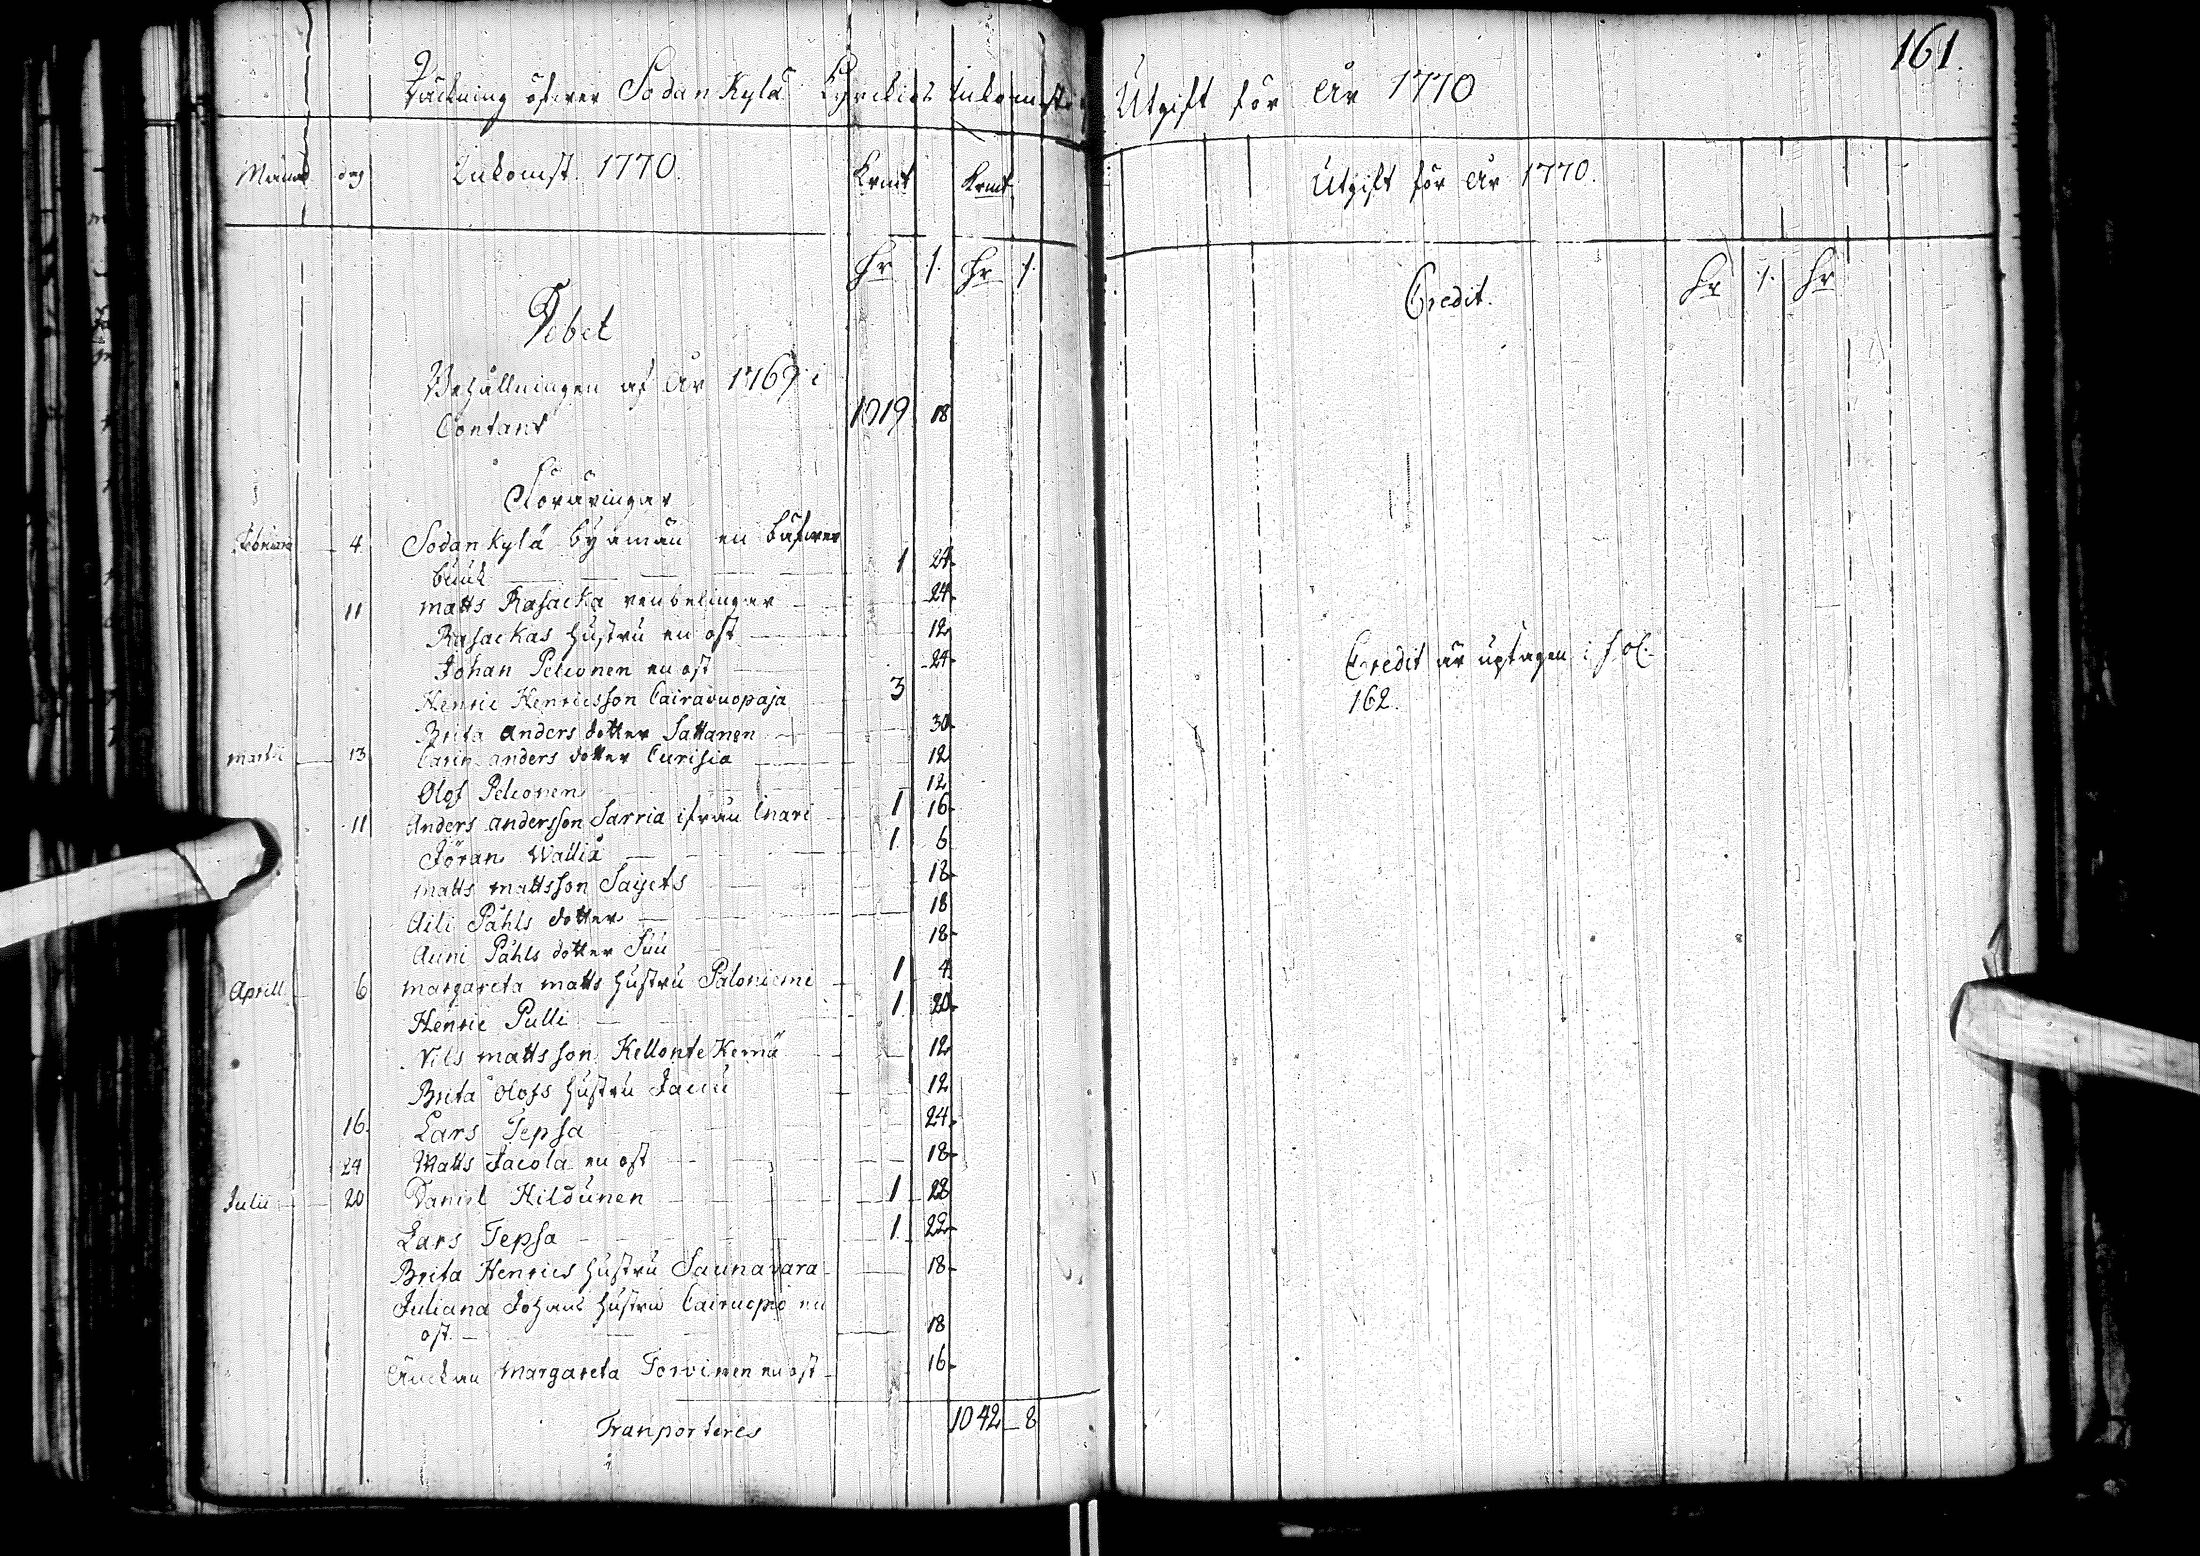 Räckning öfwer Sodankylä Kyrckios Inkomster
Månad dag Inkomst 1770. Krmt Krmt
Dr /. Dr /.
Debet
Behållningen af År 1769 i
Contant 1019 18
Föräringar
Februarii 4 Sodankylä byamän en bäfwer
1 24
11 Matts Rasacka renbelingar 24
Rasackas hustru en ost 12
Johan Pelconen en ost 24
Henric Henricsson Cairavuopaja 3
Brita Anders dotter Sattanen 30
Martii 13 Carin Anders dotter Curisia 12
Olof Pelconen 12
11 Anders Andersson Sarria ifrån Enari 1 16
Jöran Wallia 1 6
Matts Mattsson Saijets 18
Aili Påhls dotter 18
Auni Påhls dotter Suu 18
Aprill 6 Margareta Matts hustru Paloniemi 1 4
Henric Pulli 1 20
Nils Mattsson Kellonte Kemä 12
Brita Olofs hustru Jacuu 12
16. Lars Tepsa 24
24 Matts Jacola en ost 18
Julii 20 Daniel Hildunen 1 28
Lars Tepsa 1 22
Brita Henrics hustru Saunavara 18
Juliana Johans hustru Cairuopio en
ost 18
Änckan Margareta Torvinen en ost 16
Tranporteres 1042 8
161.
Utgift för År 1770
Utgift för År 1770.
Credit. Dr /. Dr
Credit är uptagen i fol.
162.